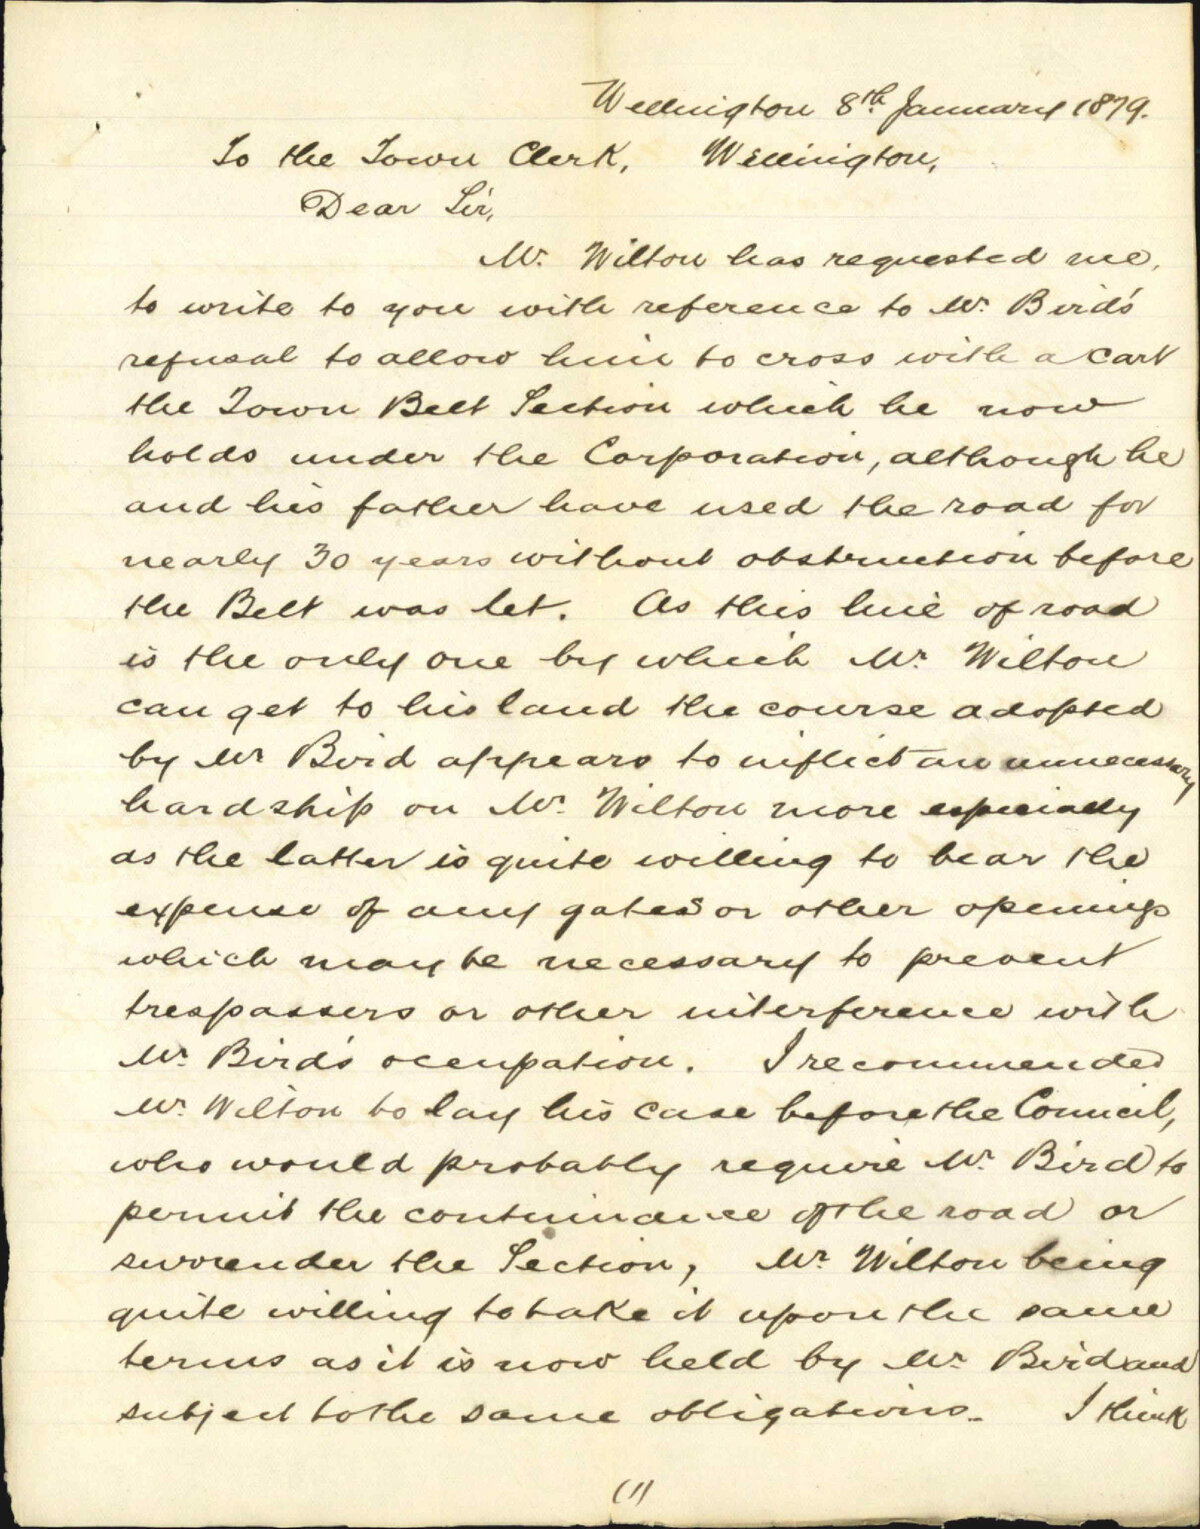 Wellington 8th January 1879.
To the Town Clerk, Wellington,
Dear Sir,
Mr. Wilton has requested me,
to write to you with reference to Mr. Bird's
refusal to allow him to cross with a cart
the Town Belt Section which he now
holds under the Corporation, although he
and his father have used the road for
nearly 30 years without obstruction before
the Belt was let. As this line of road
is the only one by which Mr. Wilton
can get to his land the course adopted
by Mr Bird appears to inflict an unnecessary
hardship on Mr. Wilton more especially
as the latter is quite willing to bear the
expense of any gates or other openings
which may be necessary to prevent
trespassers or other interference with
Mr. Bird's occupation. I recommended
Mr. Wilton to lay his case before the Council,
who would probably require Mr. Bird to
permit the continuance of the road or
surrender the Section, Mr. Wilton being
quite willing to take it upon the same
terms as it is now held by Mr. Bird and
subject to the same obligations. I think
(1)